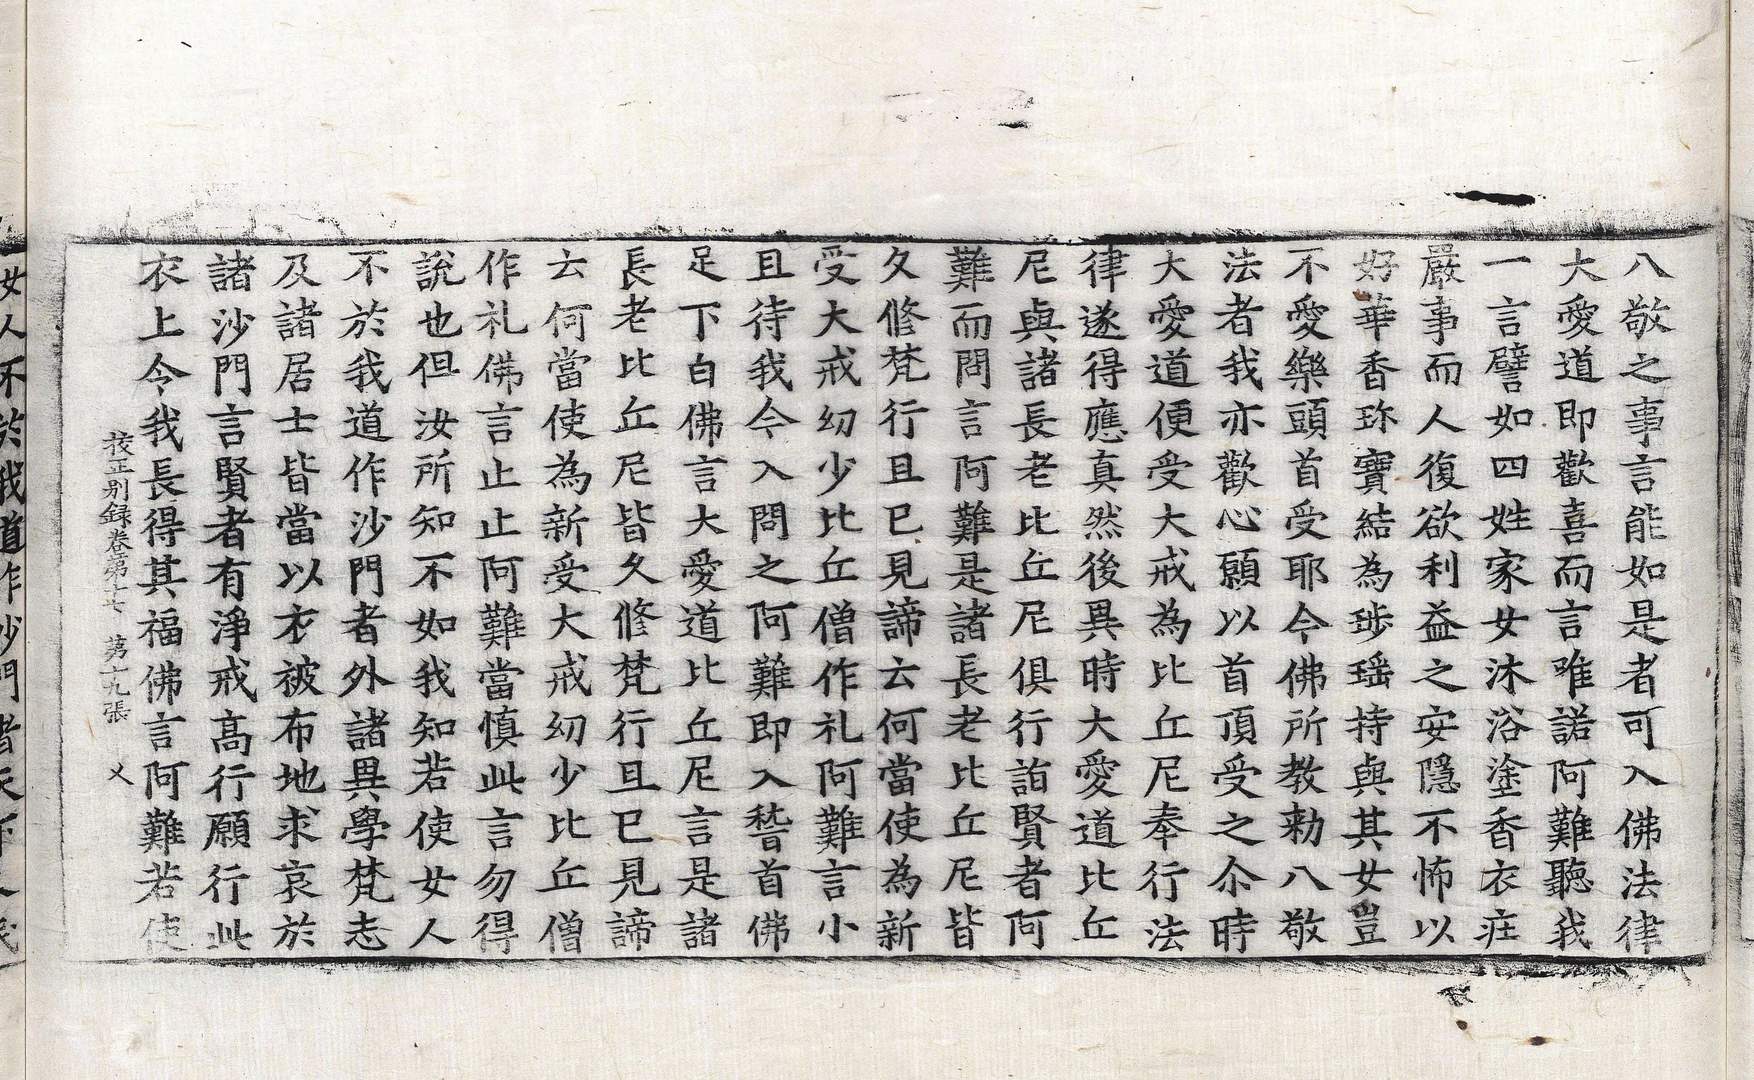 八敬之事言能如是者可入佛法律
大愛道即歡喜而言唯諾阿難聽我
一言譬如四姓家女沐浴塗香衣莊
嚴事而人復欲利益之安隱不怖以
好華香珎寶結為珍瑶持與其女豈
不愛樂頭首受耶今佛所教勑八敬
法者我亦歡心願以首頂受之尒時
大愛道便受大戒為比丘尼奉行法
律遂得應真然後異時大愛道比丘
尼與諸長老比丘尼俱行詣賢者阿
難而問言阿難是諸長老比丘尼皆
久修梵行且已見諦云何當使為新
受大戒幼少比丘僧作礼阿難言小
且待我今入問之阿難即入嵆首佛
足下白佛言大愛道比丘尼言是諸
長老比丘尼皆久修梵行且已見諦
云何當使為新受大戒幼少比丘僧
作礼佛言止止阿難當慎此言勿得
說也但汝所知不如我知若使女人
不於我道作沙門者外諸異學梵志
及諸居士皆當以衣被布地求哀於
諸沙門言賢者有淨戒高行願行此
衣上令我長得其福佛言阿難若使
校正別録卷第十七 苐十九張 乂
女人不於我道作沙門者天下人民